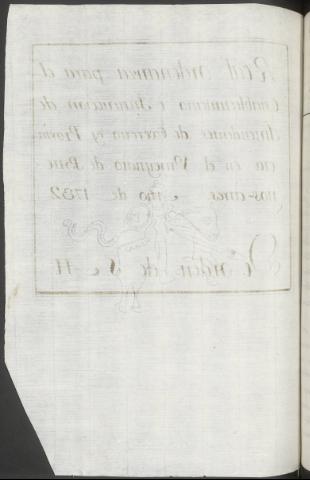 Real Ordenanza para el
Establecimiento e Instruccion de
Intendentes de Exercito y Provin
cia en el Virreynato de Bue
nos-ayres Año de 1782
Orden de S. M.